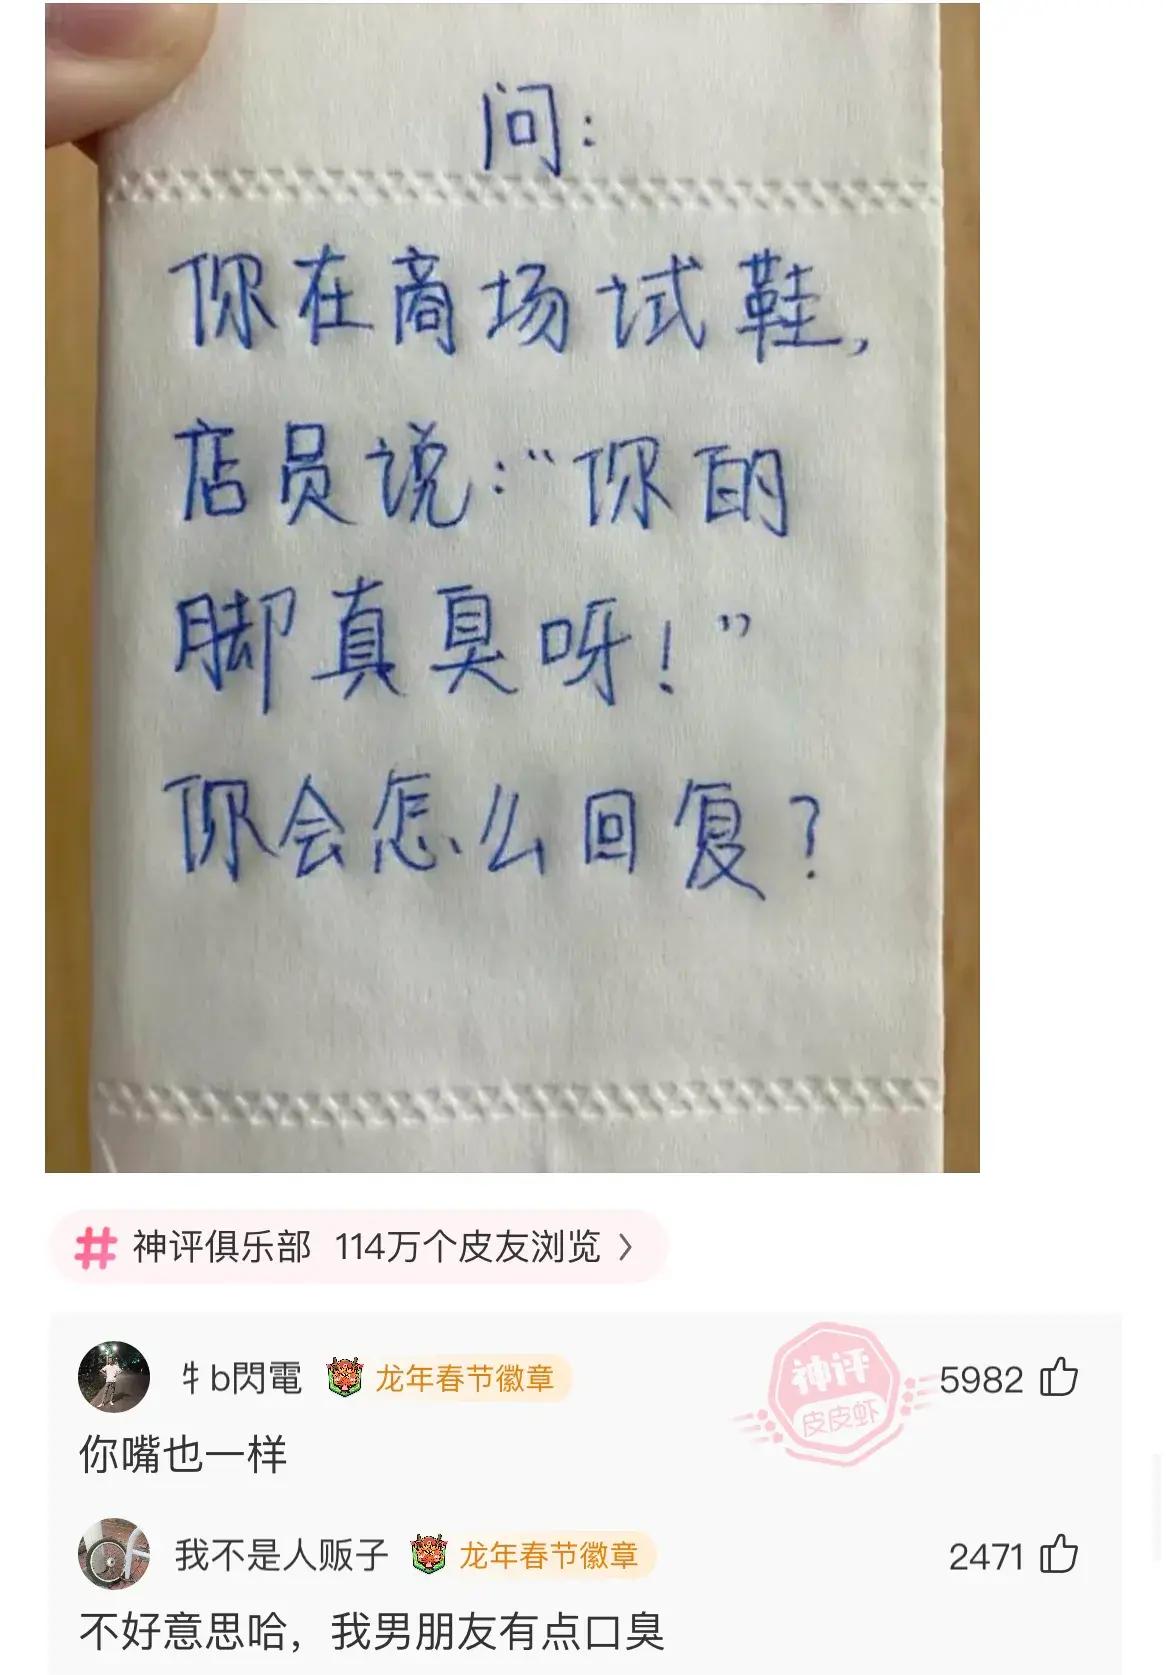 问：
你在商场试鞋，
店员说：“你的
脚真臭呀！”
你会怎么回复？
神评俱乐部 114万个皮友浏览
牜b閃電 龙年春节徽章
神评
皮皮虾
5982
你嘴也一样
我不是人贩子 龙年春节徽章
2471
不好意思哈，我男朋友有点口臭